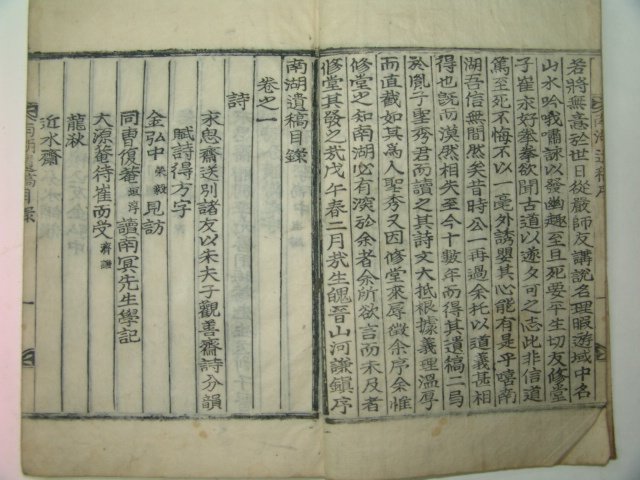 若將無意於世日從嚴師友講說名理暇遊域中名
山水吟哦嘯詠以發幽趣至且死要平生切友修堂
子崔永好拳拳欲聞古道以遂夕可之志此非信道
篤至死不悔不以一毫外誘嬰其心能有是乎嘻南
湖吾信無間然矣昔時公一再過余托以道義甚相
得也旣而漠然相失至今十數年而得其遺稿二局
於胤子聖秀君而讀之其詩文大抵根據義理溫厚
而直截如其爲人聖秀又因修堂來辱徵余序余惟
修堂之知南湖必有深於余者余所欲言而未及者
修堂其發之㢤戊午春二月㢤生魄晉山河謙鎭序
南湖遺稿目錄
卷之一
詩
家思齋送別諸友以朱夫子觀善齋詩分韻
賦詩得方字
金弘中 榮毅 見訪
同曺復菴 讀南冥先生學記
大源菴待崔而受
龍秋
近水齋
南湖遺稿序
南湖遺稿目錄
一